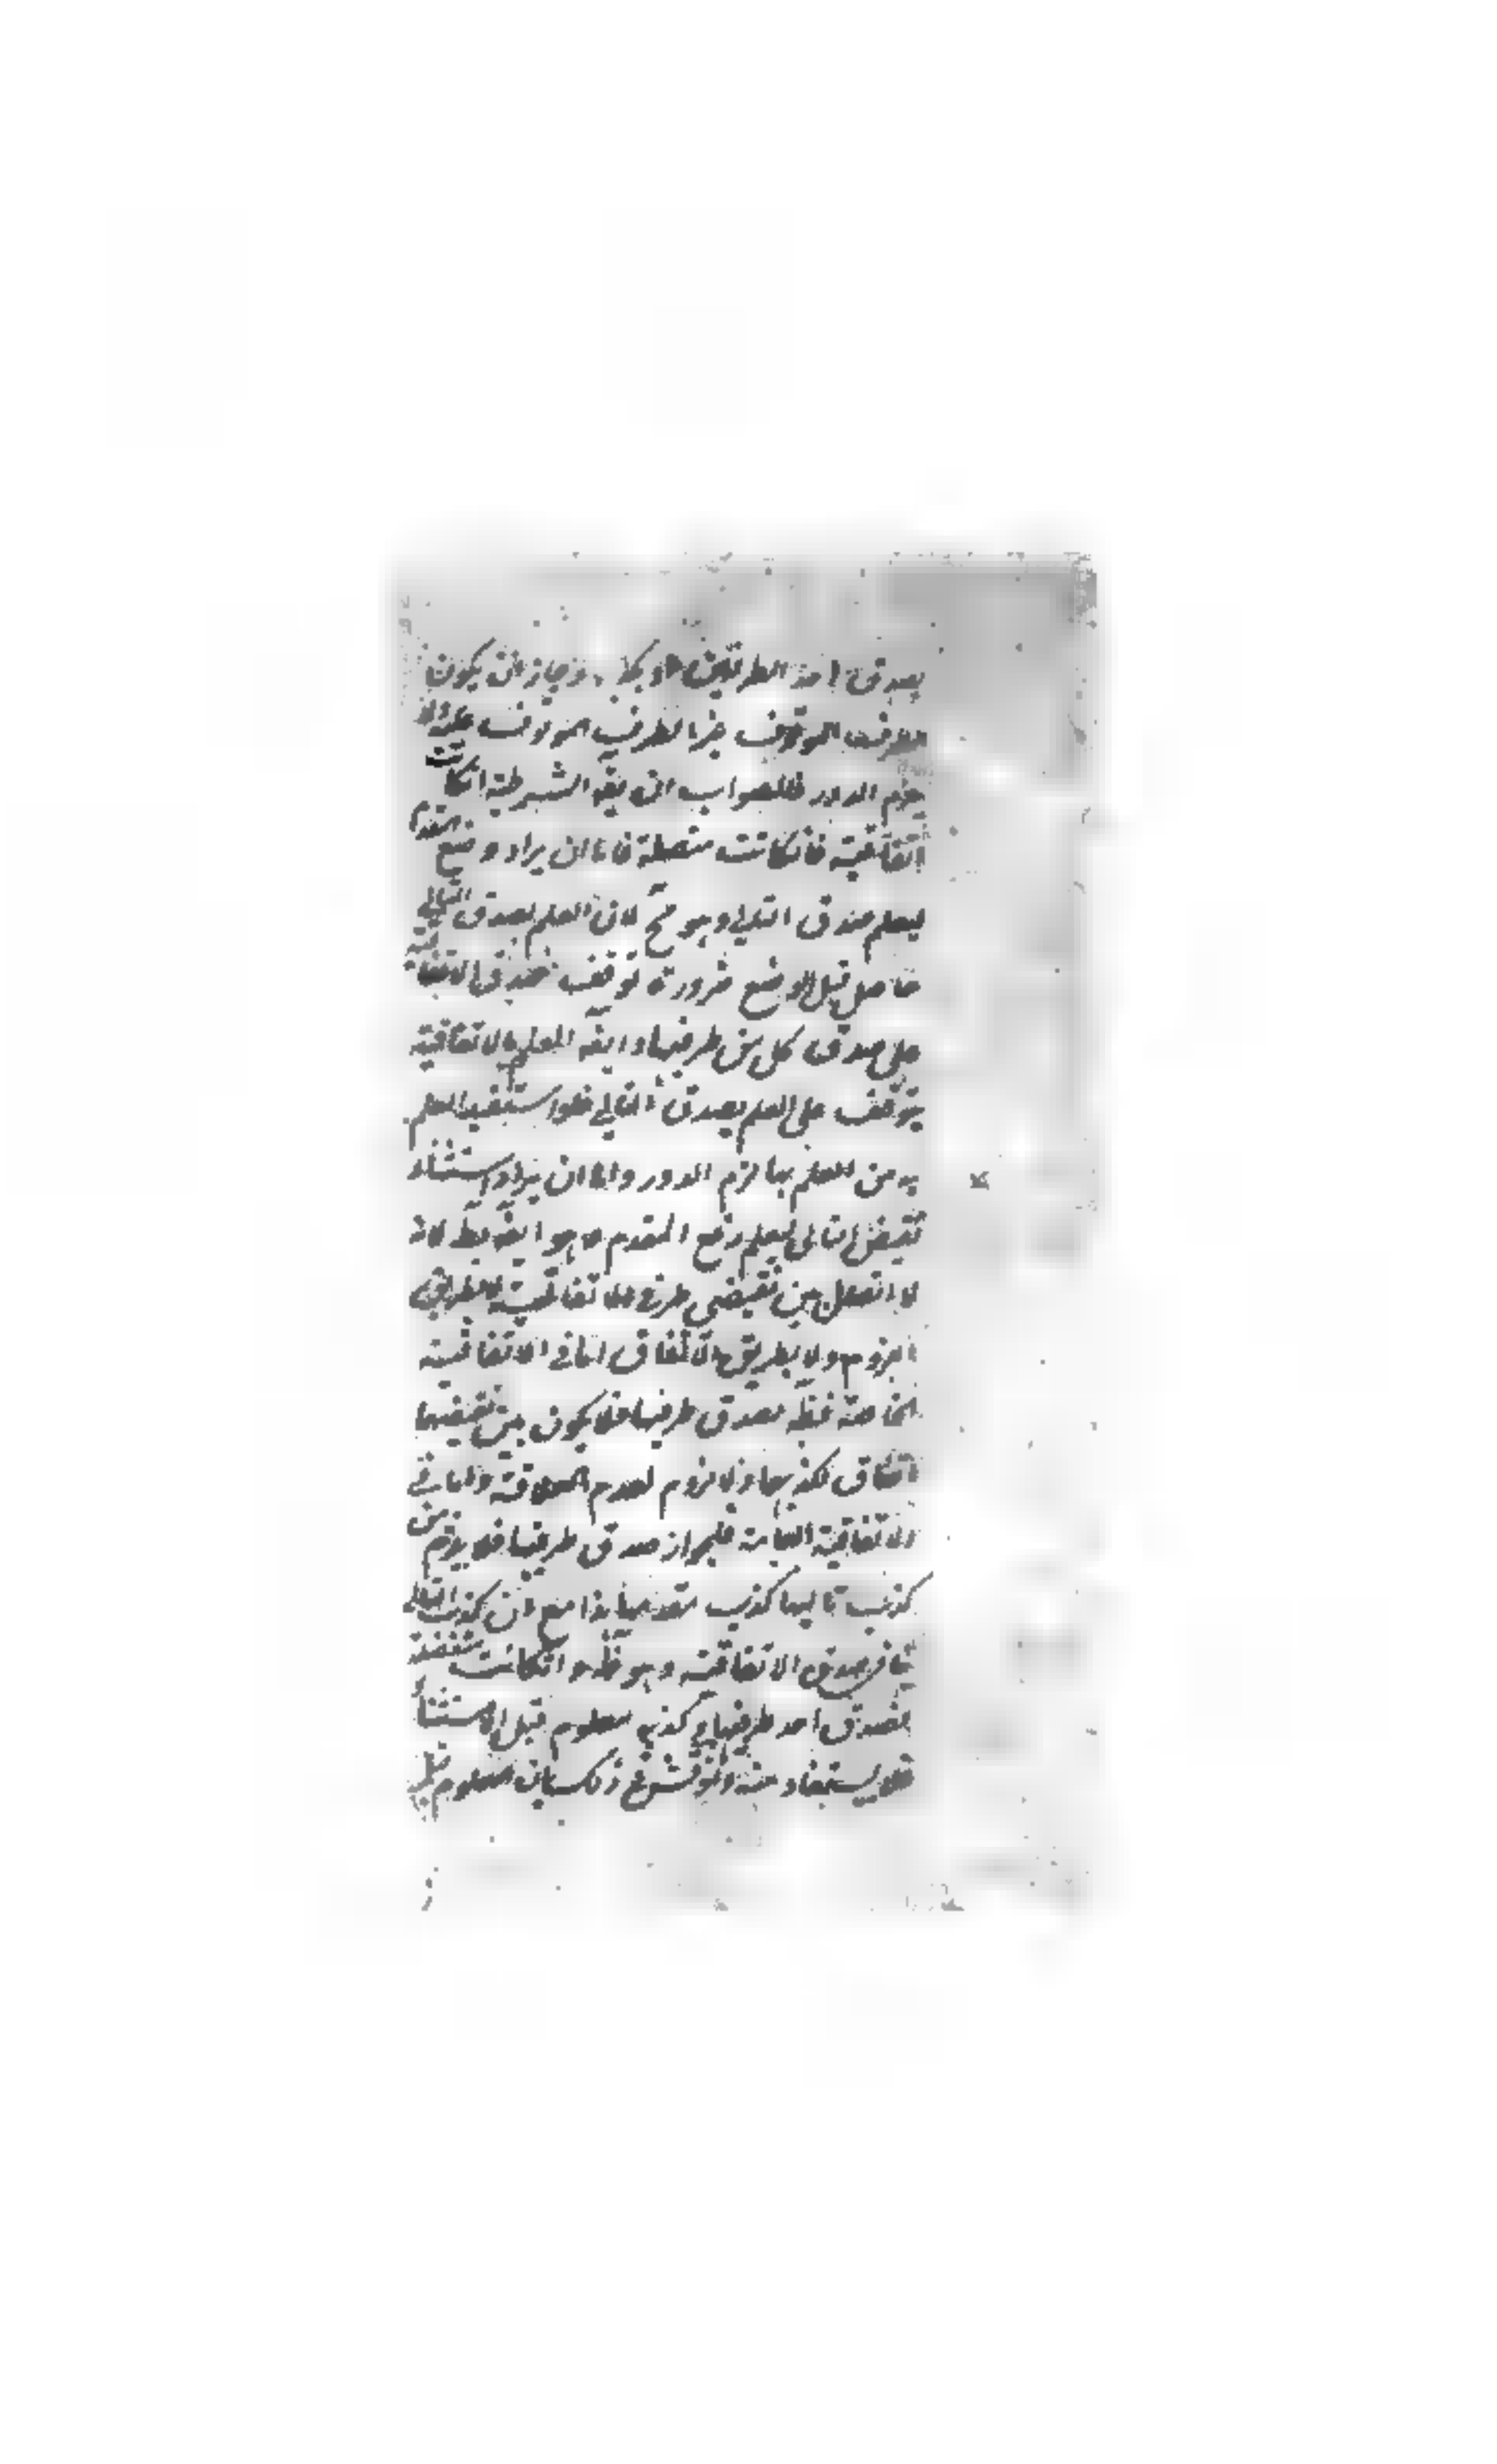 بصدق احد الطرفين او بكذبه وجاز ان يكون
الطرف الموقوف غير الطرف الموقوف عليه فلا
يلزم الدور فالصواب ان يقه الشرطية انكانت
اتفاقية فانكانت متصلة فاما ان يراد وضع المقدم
ليعلم صدق التالى وهو مح لان العلم بصدق التالى
حاصل قبل الوضع ضرورة توقف صدق الاتفاقية
على صدق كل من طرفيها وايضه العلم بالاتفاقية
يتوقف على العلم بصدق التالى فلو استفيد العلم
به من العلم بها لزم الدور واما ان يراد استثناء
نقيض التالى ليعلم رفع المقدم وهو ايضه بط لانه
لا اتصال بين نقيضى طرفى الاتفاقية لا بطريق
اللزوم ولا بطريق الاتفاق اما فى الاتفاقية
الخاصة فظه لصدق طرفيها فلا يكون بين نقيضيهما
اتفاق لكذبهما ولا لزوم لعدم العلاقة واما فى
الاتفاقية العامة فلجواز صدق طرفيها فلا يلزم من
كذب تاليها كذب مقدمها هذا مع ان كذب التالى
ينافى صدق الاتفاقية وهو ظه وانكانت منفصلة
فصدق احد طرفيها او كذبه معلوم قبل الاستثناء
فلا يستفاد منه ولو نشوع ذلك بان معلوم قبل